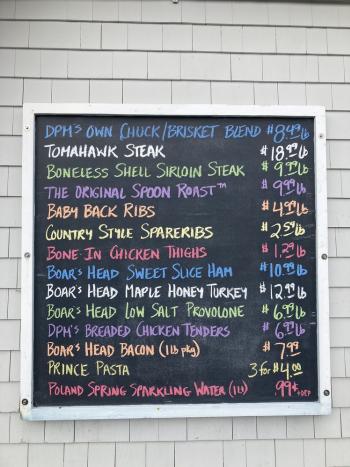 DPM's Own Chuck/Brisket Blend $8.49 lb
Tomahawk Steak $18.99 lb
Boneless Shell Sirloin Steak $9.99 lb
The Original Spoon Roast™ $9.99 lb
Baby Back Ribs $4.99 lb
Country Style Spareribs $2.59 lb
Bone In Chicken Thighs $1.29 lb
Boar's Head Sweet Slice Ham $10.99 lb
Boar's Head Maple Honey Turkey $12.99 lb
Boar's Head Low Salt Provolone $6.99 lb
DPM's Breaded Chicken Tenders $6.99 lb
Boar's Head Bacon (1 lb pkg) $7.99
Prince Pasta 3 for $4.00
Poland Spring Sparkling Water (1L) .99¢ +DEP